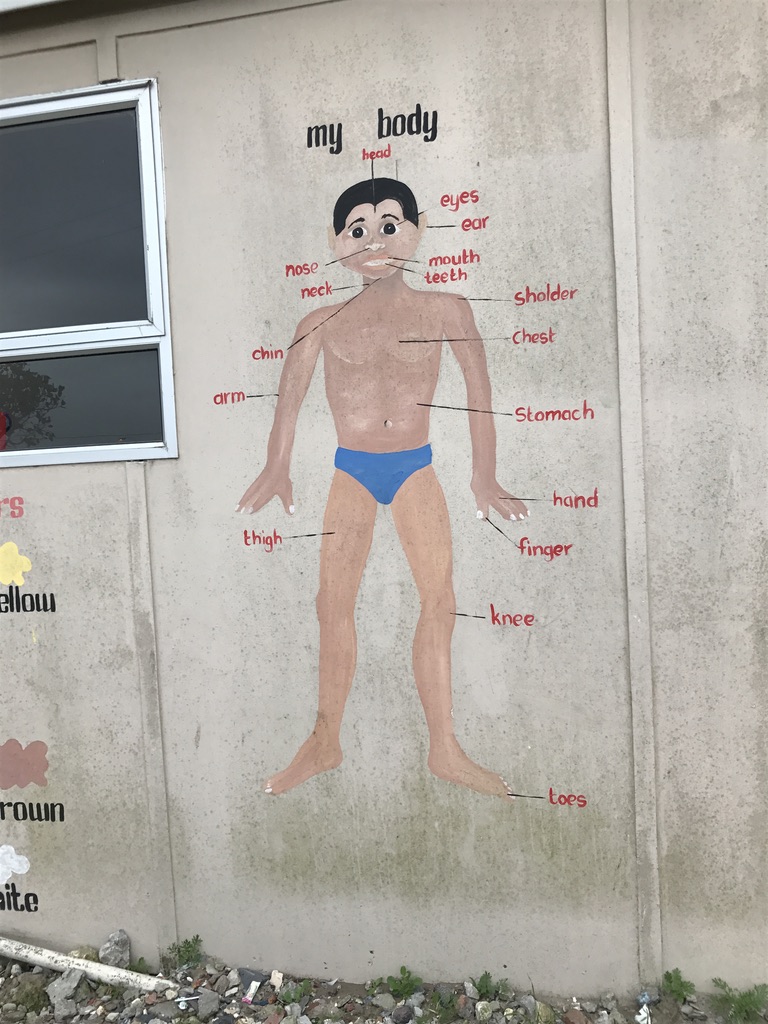 my body
head
eyes
ear
nose
mouth
teeth
neck
sholder
chin
Chest
arm
Stomach
hand
thigh
finger
knee
toes
rs
ellow
rown
ite